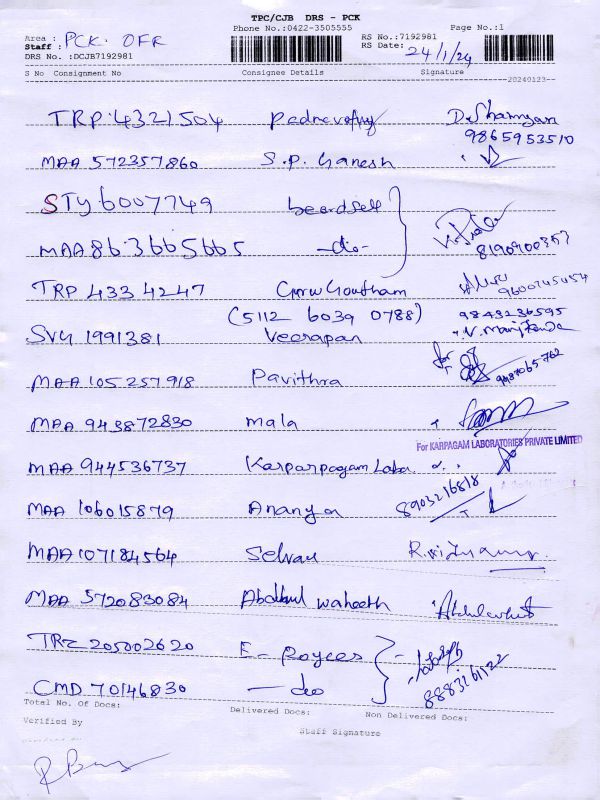 TPC/CJB DRS - PCK
Phone No.:0422-3505555 Page No.:1
Area : PCK. OFR RS No.:7192981
Staff : RS Date: 24/1/24
DRS No. :DCJB7192981
S No Consignment No Consignee Details Signature
20240123
TRP.4321504
9865953510
MAA 572357860 S.P. Ganesh
STY 6007749
MAA 863665665 -do-
8190900353
TRP 4334247 Goutham
9600745454
(5112 6039 0788) 9843236595
SVG 1991381 Veerapan
for
MAA 105257918 Pavithra 9487065762
MAA 943872830 mala
For KARPAGAM LABORATORIES PRIVATE LIMITED
MAA 944536737 Karparpagam Laba
8903216818
MAA 106015879 Ananya
MAA 107184564 Selvan
MAA 572083084 waheeth
TRZ 205002620 E- Royces
8883261122
CMD 70146830 -do
Total No. Of Docs: Delivered Docs: Non Delivered Docs:
Verified By
Staff Signature